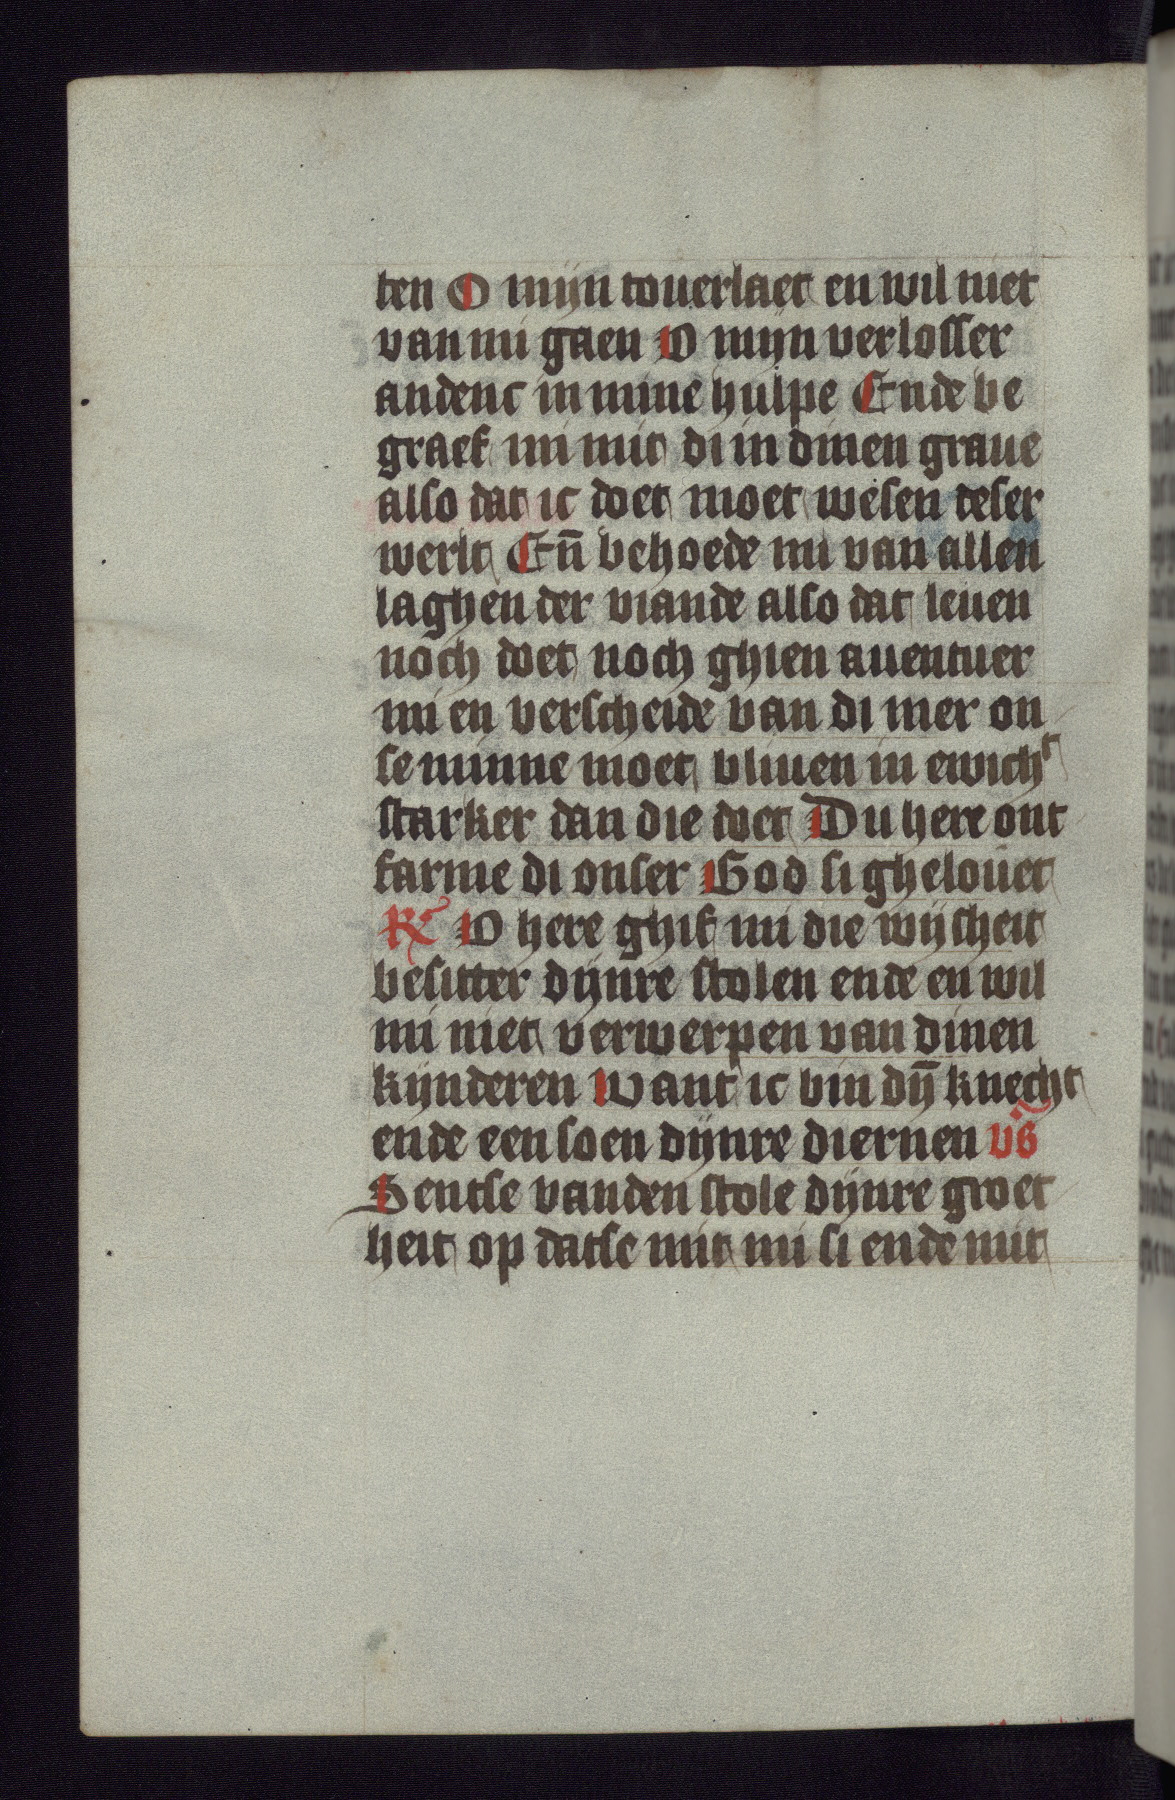 ten O mijn touerlaet en wil niet
van mi gaen O mijn verlosser
andenc in mine hulpe Ende be
graef mi mit di in dinen graue
also dat ic doet moet wesen deser
werlt En̄ behoede mi van allen
laghen der viande also dat leuen
noch doet noch ghien auentuer
mi en verscheide van di mer on
se minne moet bliuen in ewichᵗ
starker dan die doet Du here ont
farme di onser God si ghelouet
R O here ghif mi die wijsheit
besitter dijnre stolen ende en wil
mi niet verwerpen van dinen
kijnderen want ic bin dij̄ knecht
ende een soen dijnre diernen vs̄
Sentse vanden stole dijnre groet
heit op datse mit mi si ende mit